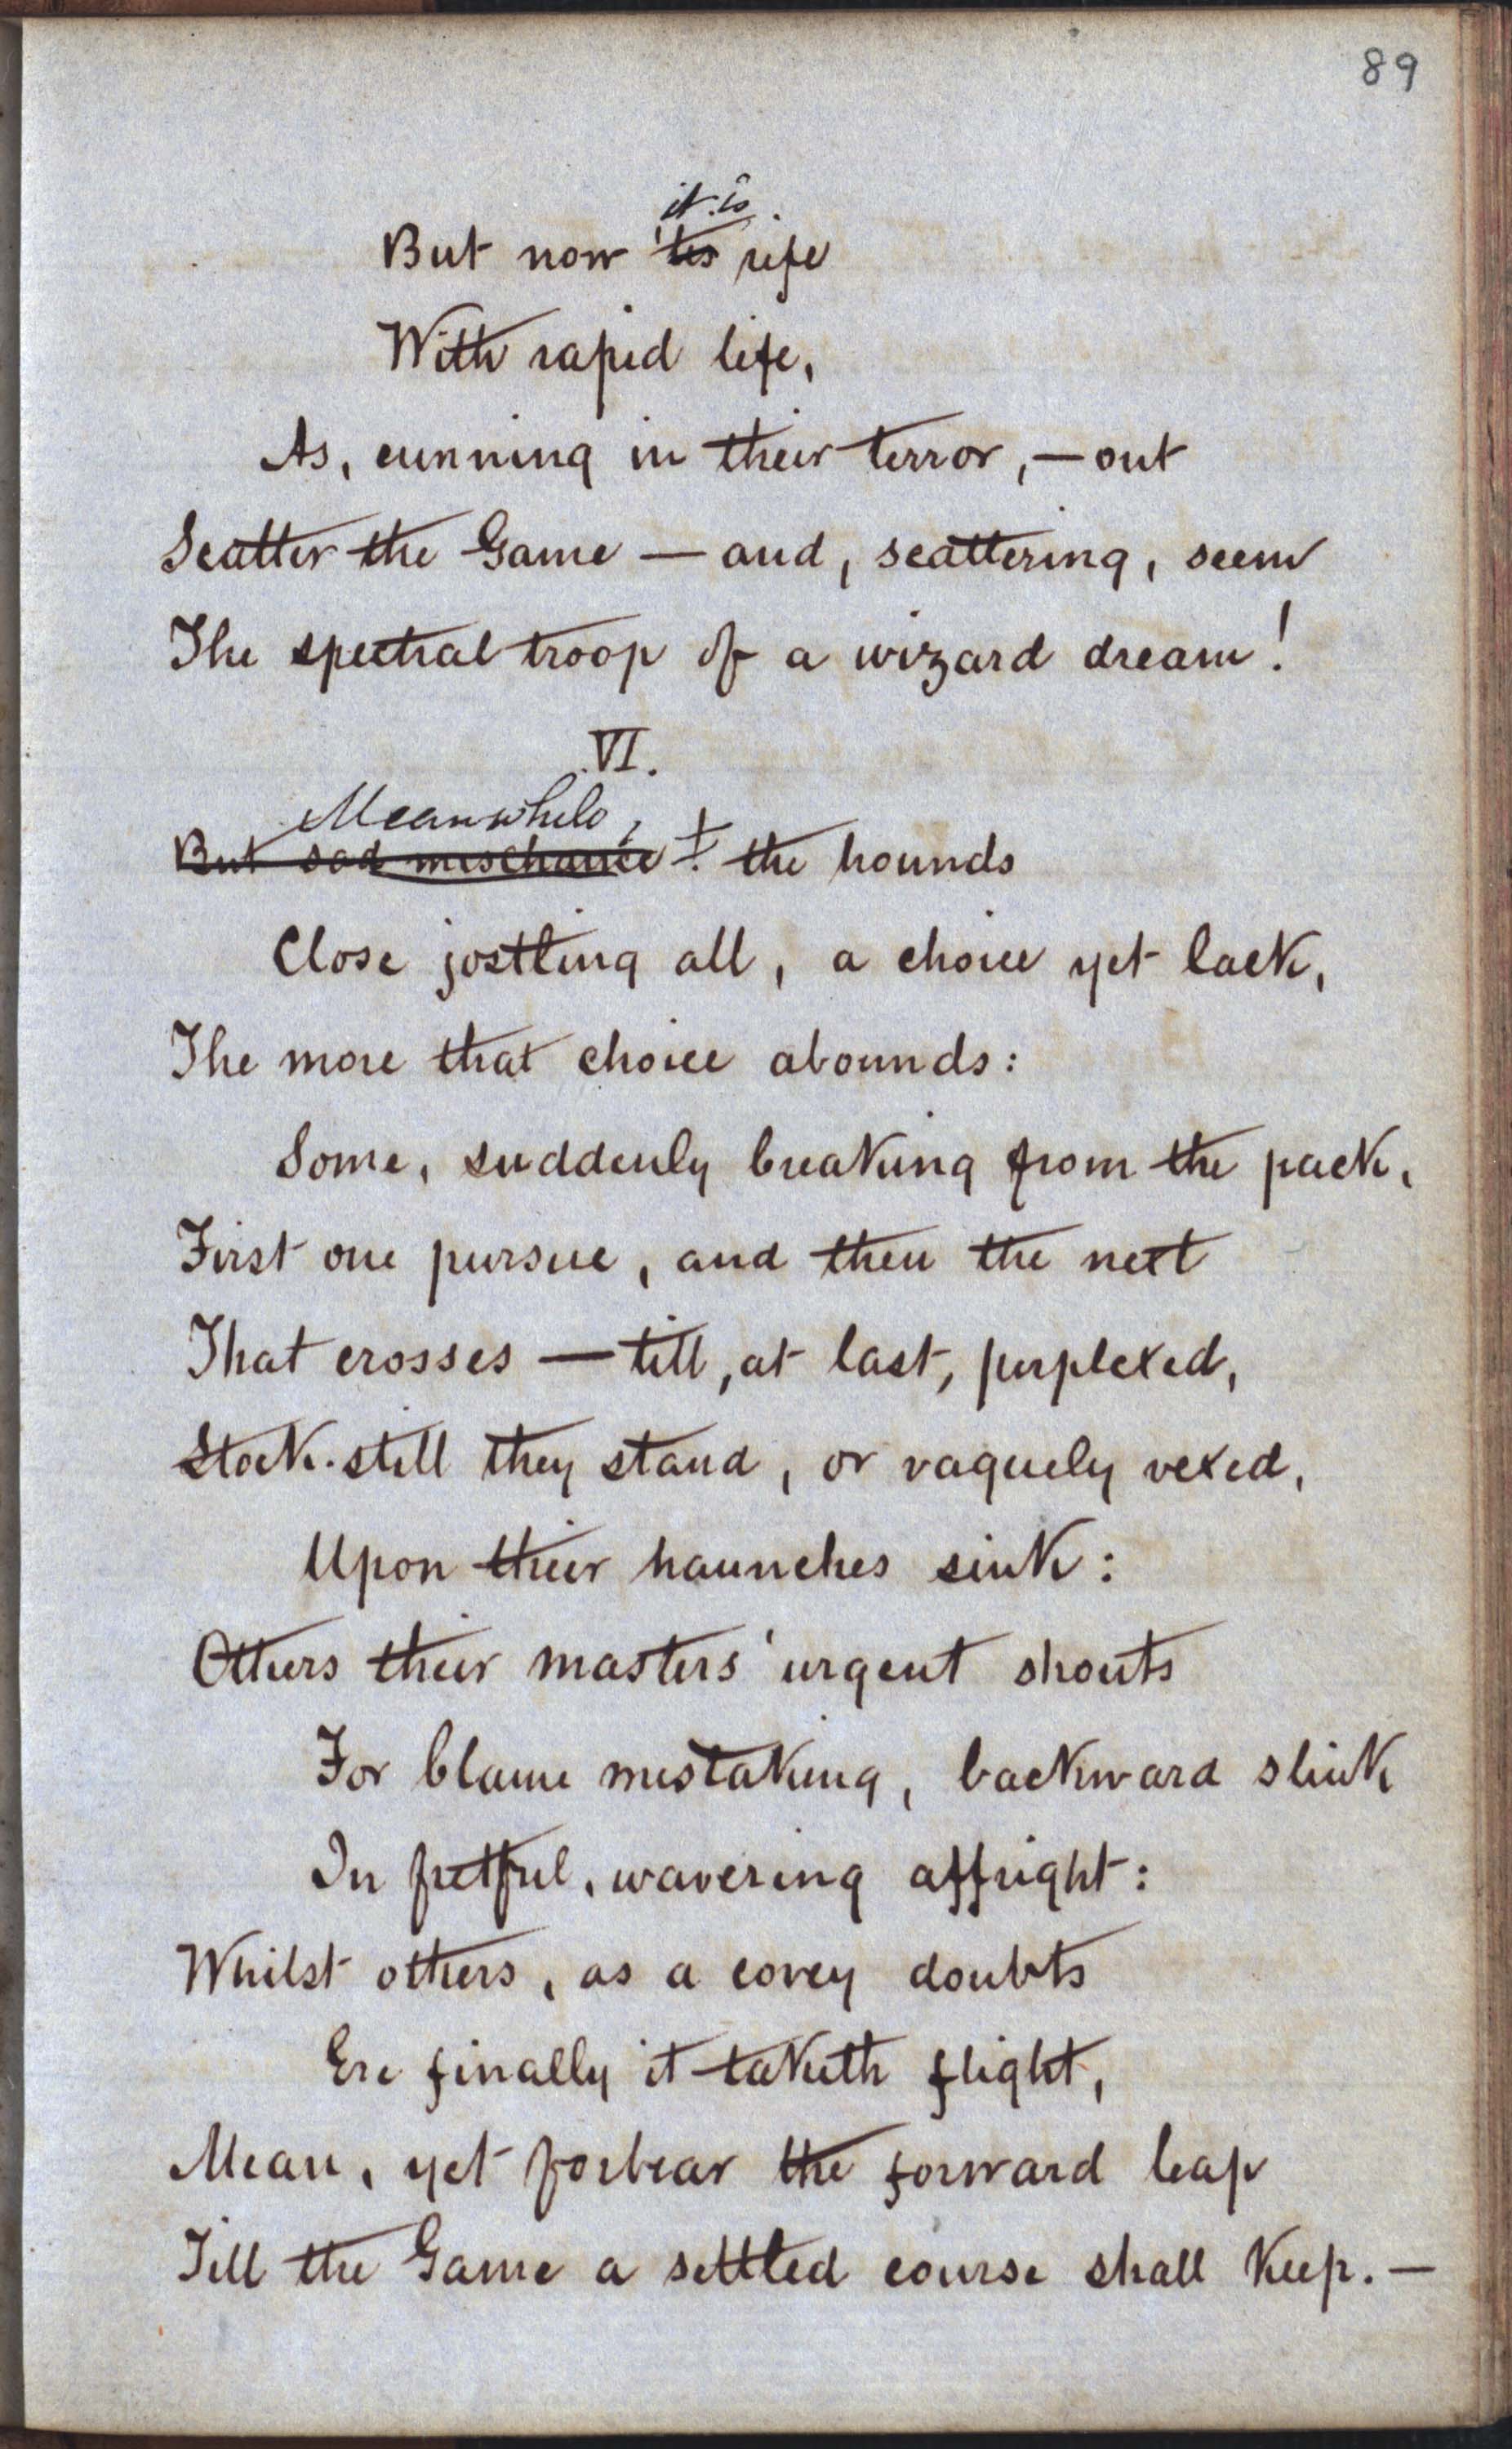 89
it is
But now 'tis rife
With rapid life,
As, cunning in their terror, — out
Scatter the Game — and, scattering, seem
The spectral troop of a wizard dream!
VI.
Meanwhile,
But sad mischance ! the hounds
Close jostling all, a choice yet lack,
The more that choice abounds:
Some, suddenly breaking from the pack,
First one pursue, and then the next
That crosses — till, at last, perplexed,
Stock-still they stand, or vaguely vexed,
Upon their haunches sink:
Others their masters' urgent shouts
For blame mistaking, backward slink
In fretful, wavering affright:
Whilst others, as a covey doubts
Ere finally it taketh flight,
Mean, yet forbear the forward leap
Till the Game a settled course shall keep. —